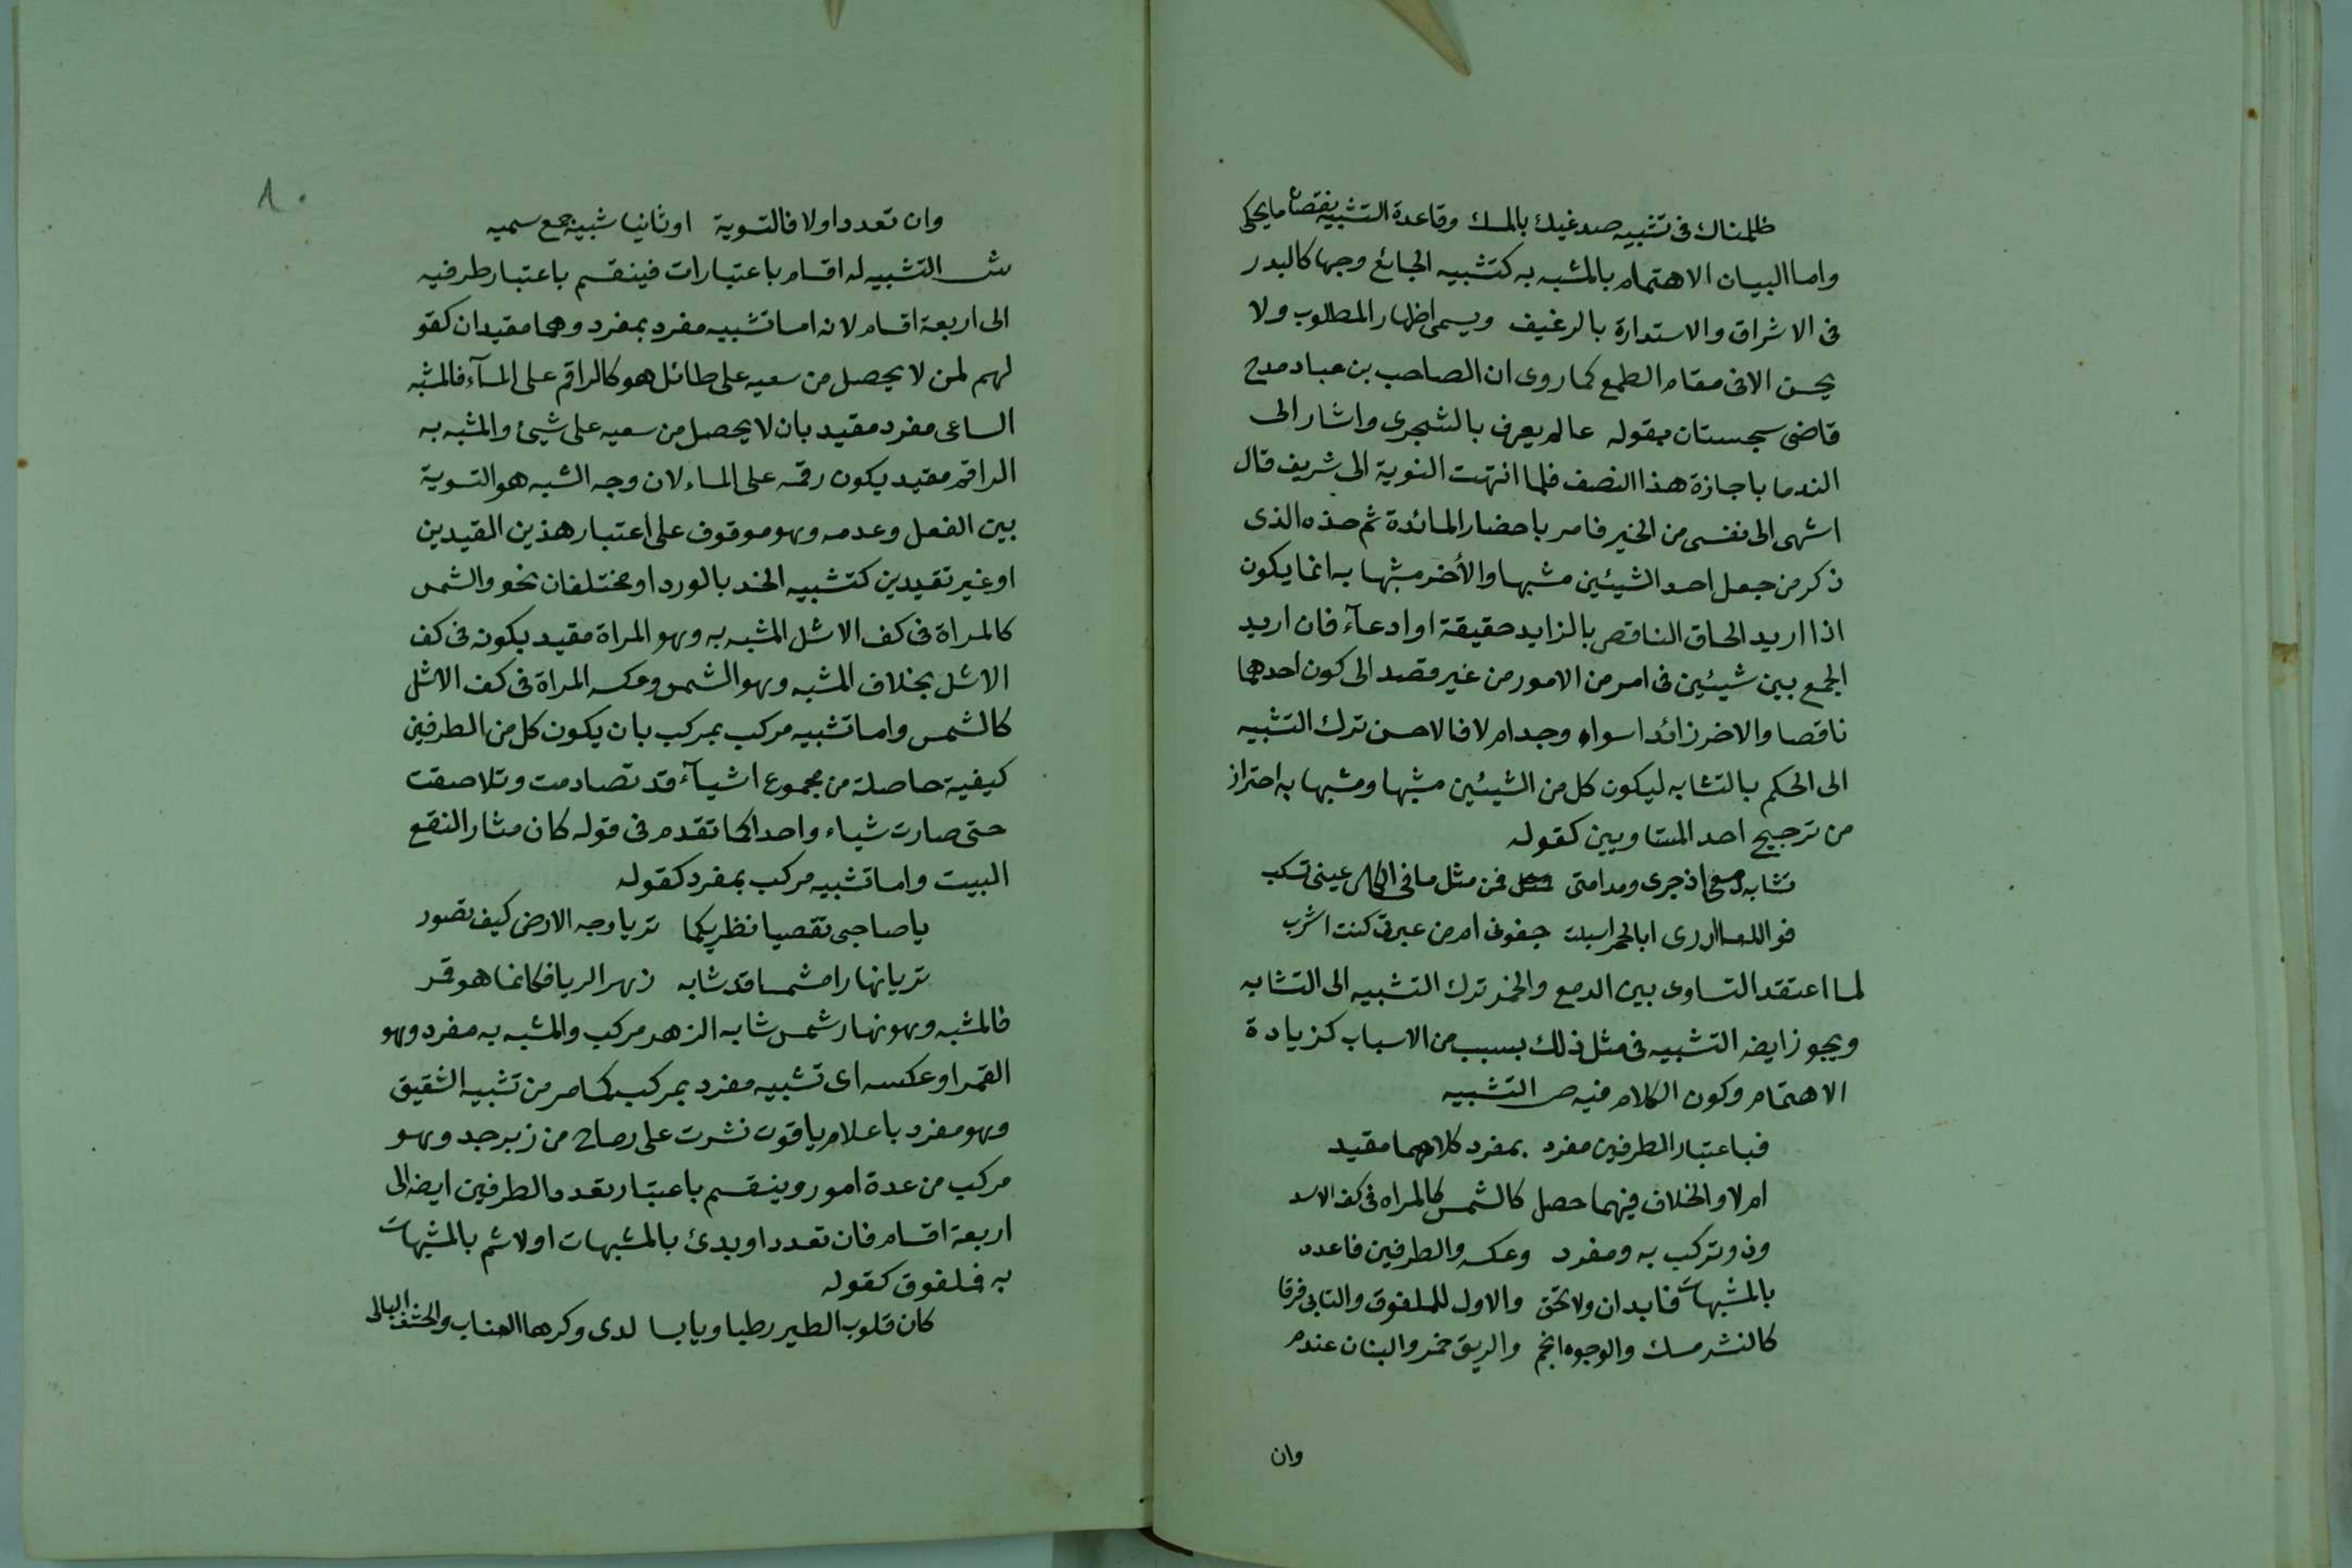 ظلمناك فى تشبيه صدغيك بالمسك وقاعدة التشبيه نقصان ما يحكى
واما البيان الاهتمام بالمشبه به كتشبيه الجائع وجها كالبدر
فى الاشراق والاستدارة بالرغيف ويسمى اظهار المطلوب ولا
يحسن الا فى مقام الطمع كما روى ان الصاحب بن عباد مدح
قاضى سجستان بقوله عالم يعرف بالشجرى واشار الى
الندما باجازة هذا النصف فلما انتهت النوبة الى شريف قال
اشهى الى نفسى من الخبز فامر باحضار المائدة ثم هذه الذى
ذكر من جعل احد الشيئين مشبها والأخر مشبها به انما يكون
اذا اريد الحاق الناقص بالزايد حقيقة او ادعآء فان اريد
الجمع بين شيئين فى امر من الامور من غير قصد الى كون احدهما
ناقصا والاخر زائدا سواء وجد ام لا فالاحسن ترك التشبيه
الى الحكم بالتشابه ليكون كل من الشيئين مشبها ومشبها به احتراز
من ترجيح احد المتساويين كقوله
تشابه دمعى اذ جرى ومدامتى فمن مثل ما فى الكاس عينى تسكب
فوالله ما ادرى ابالخمر اسبلت جفونى ام من عبرتى كنت اشرب
لما اعتقد التساوى بين الدمع والخمر ترك التشبيه الى التشابه
ويجوز ايضه التشبيه فى مثل ذلك بسبب من الاسباب كزيادة
الاهتمام وكون الكلام فيه ص التشبيه
فباعتبار الطرفين مفرد بمفرد كلاهما مقيد
ام لا والخلاف فيهما حصل كالشمس كالمراه فى كف الاسد
وذو تركب به ومفرد وعكسه والطرفين فاعدد
بالمشبهات فابدان ولا تحق والاول للملفوق والثانى فرقا
كالنشر مسك والوجوه انجم والريق خمر والبنان عندم
وان
٨٠
وان تعدد اولا فالتسوية او ثانيا شبيه جمع سميه
ش التشبيه له اقسام باعتبارات فينقسم باعتبار طرفيه
الى اربعة اقسام لانه اما تشبيه مفرد بمفرد وهما مقيدان كقو
لهم لمن لا يحصل من سعيه على طائل هو كالراقم على المآء فالمشبه
الساعى مفرد مقيد بان لا يحصل من سعيه على شيئ والمشبه به
الراقم مقيد يكون رقمه على الماء لان وجه الشبه هو التسوية
بين الفعل وعدمه وهو موقوف على اعتبار هذين القيدين
او غير تقيدين كتشبيه الخد بالورد او مختلفان نحو والشمس
كالمراة فى كف الاشل المشبه به وهو المراة مقيد بكونه فى كف
الاشل بخلاف المشبه وهو الشمس وعكسه المراة فى كف الاشل
كالشمس واما تشبيه مركب بمركب بان يكون كل من الطرفين
كيفية حاصلة من مجموع اشيآء قد تصادمت وتلاصقت
حتى صارت شياء واحدا كما تقدم فى قوله كان مثار النقع
البيت واما تشبيه مركب بمفرد كقوله
يا صاحبى تقصيا نظريكما تريا وجه الارض كيف تصور
تريا نهارا مشمسا قد شابه زهر الربا فكانما هو قمر
فالمشبه وهو نهار شمس شابه الزهر مركب والمشبه به مفرد وهو
القمر او عكسه اى تشبيه مفرد بمركب كما مر من تشبيه الشقيق
وهو مفرد باعلام ياقوت نشرت على رماح من زبرجد وهو
مركب من عدة امور وينقسم باعتبار تعدد الطرفين ايضه الى
اربعة اقسام فان تعددا وبدئ بالمشبهات اولا ثم بالمشبهات
به فملفوق كقوله
كان قلوب الطير رطبا ويابسا لدى وكرها العناب والحشف البالى